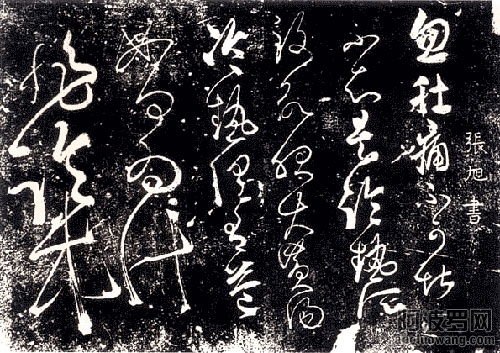 張旭書
忽肚痛不可堪
不知是冷熱所
致欲服大黃湯
冷熱俱有益
如何為計
阿波罗网
aboluowang.com